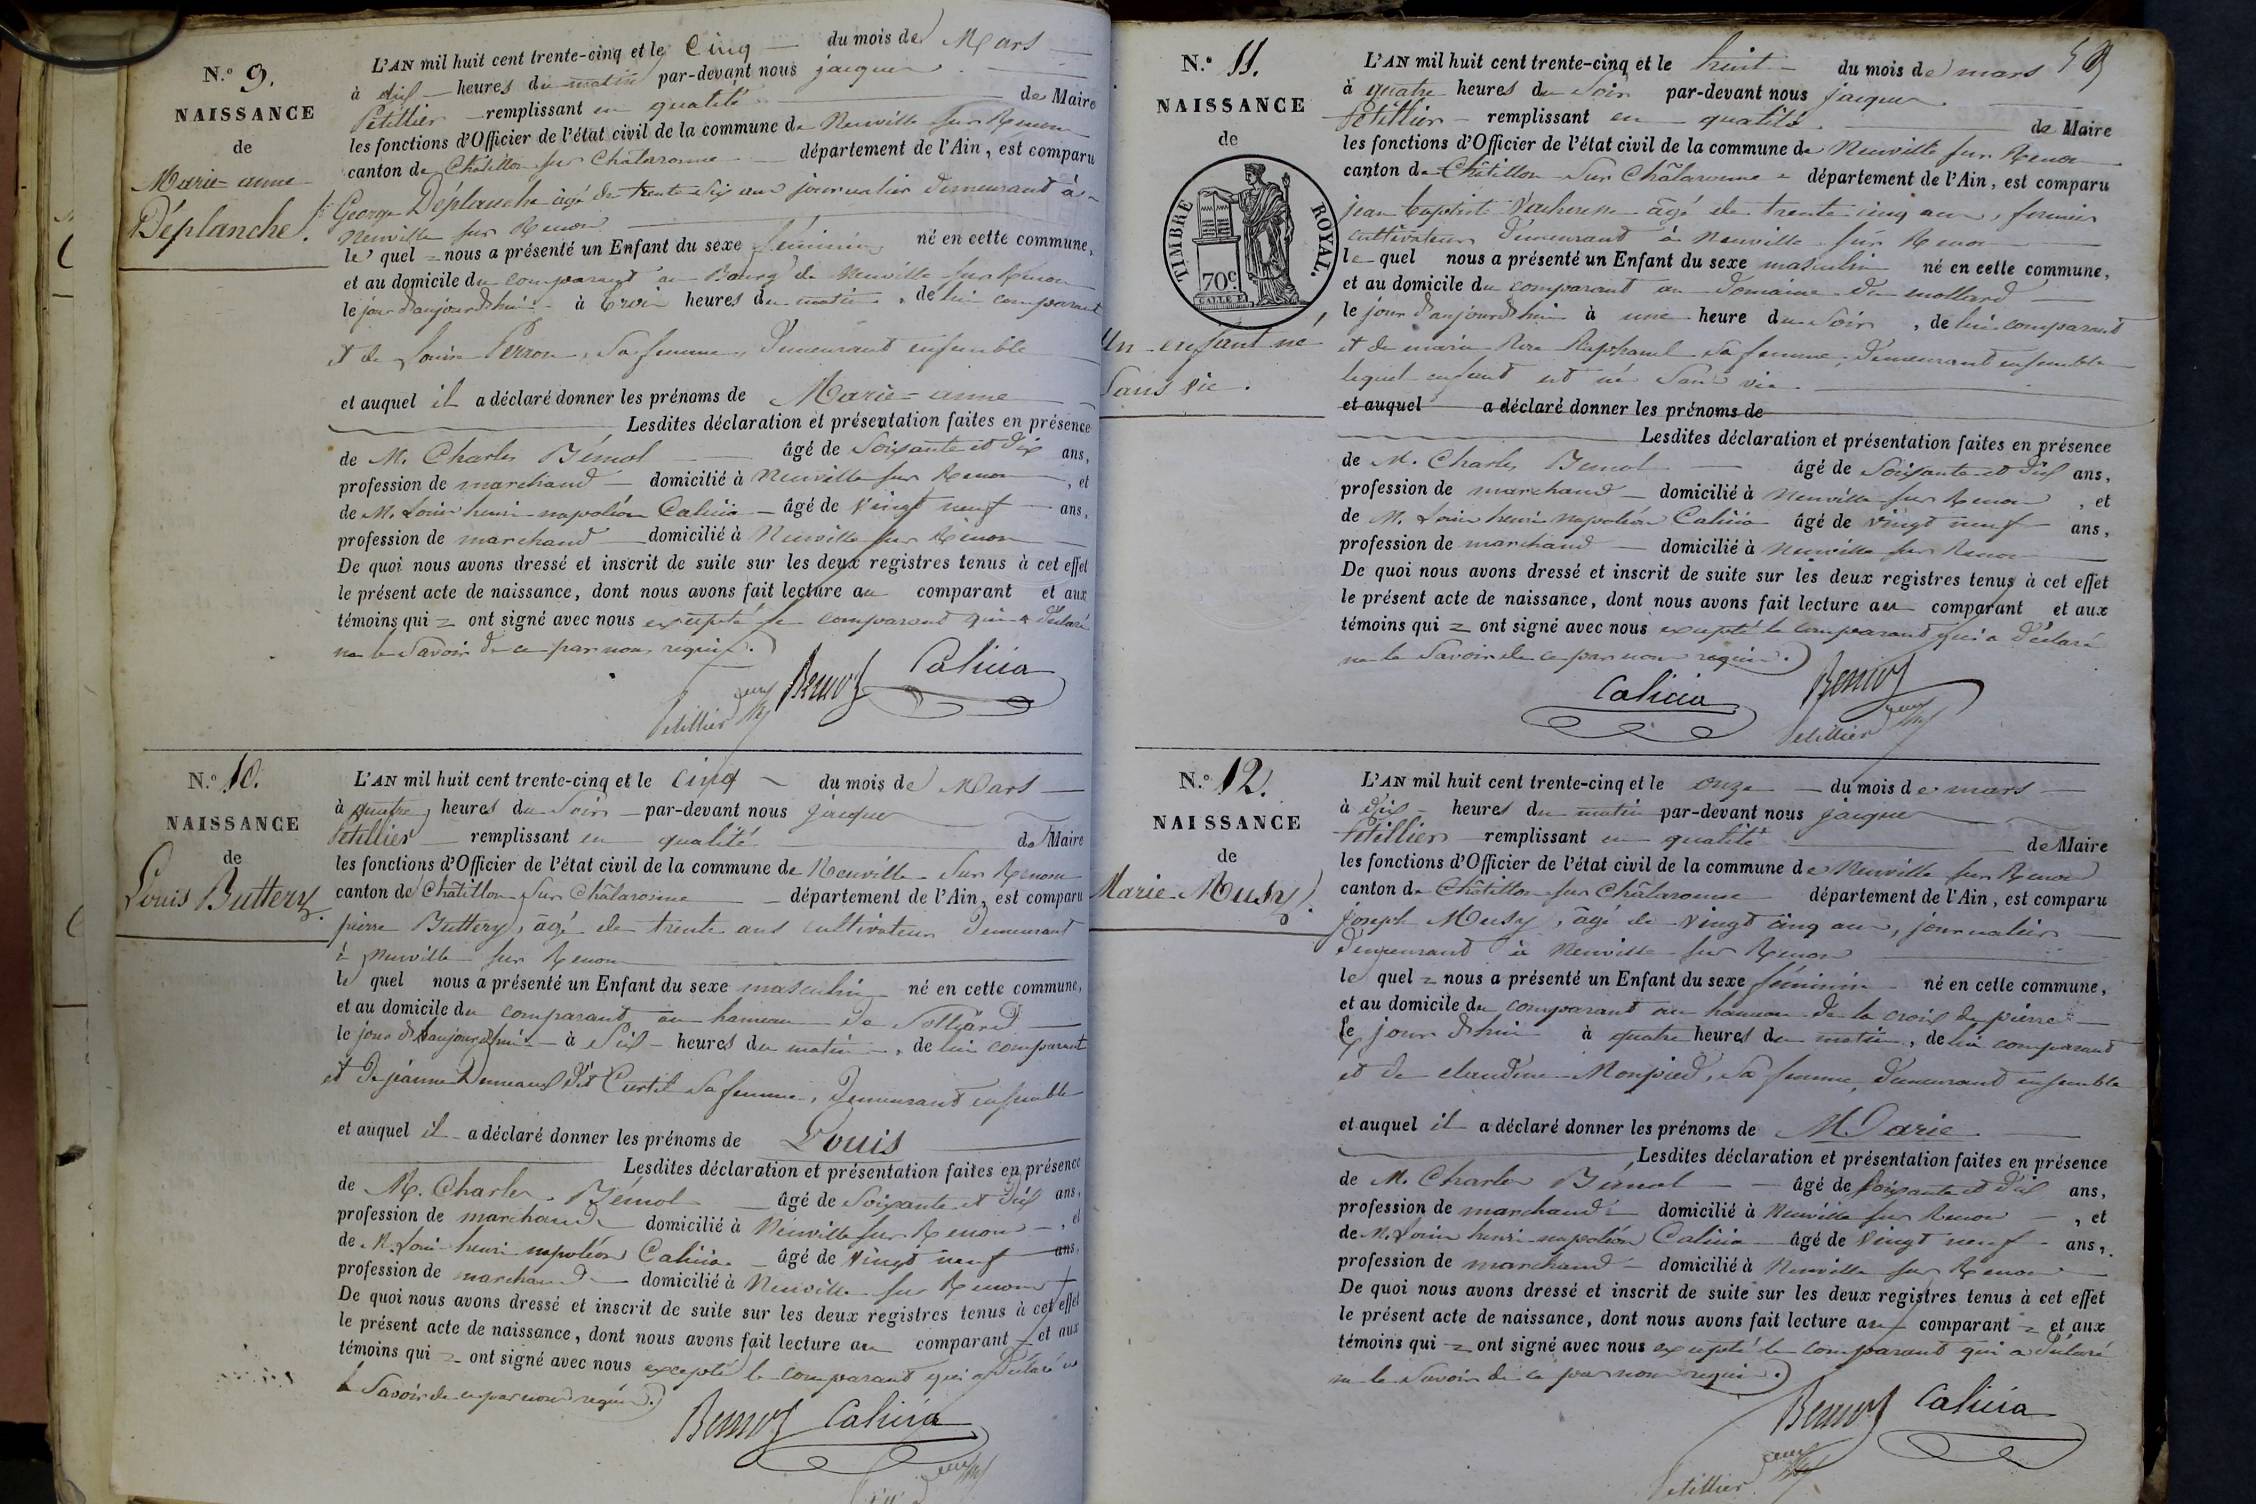 N.º 9.
NAISSANCE
de
Marie-anne
Déplanche.
L'AN mil huit cent trente-cinq et le Cinq du mois de Mars
à dix heures du matin par-devant nous jacques
Pétillier remplissant en qualité de Maire
les fonctions d'Officier de l'état civil de la commune de Neuville sur Renom
canton de Châtillon sur Châlaronne département de l'Ain, est comparu
George Déplanche âgé de trente six ans journalier demeurant à
Neuville sur Renon
le quel nous a présenté un Enfant du sexe féminin né en cette commune,
et au domicile du comparant au Bourg de Neuville sur Renon
le jour d'aujourd'hui à trois heures du matin, de lui comparant
et de Louise Perron, sa femme, demeurant ensemble
et auquel il a déclaré donner les prénoms de Marie-anne
Lesdites déclaration et présentation faites en présence
de M. Charles Bémol âgé de soixante et dix ans,
profession de marchand domicilié à Neuville sur Renon, et
de M. Louis henri napoléon Calicia âgé de vingt neuf ans,
profession de marchand domicilié à Neuville sur Renon
De quoi nous avons dressé et inscrit de suite sur les deux registres tenus à cet effet
le présent acte de naissance, dont nous avons fait lecture au comparant et aux
témoins qui ont signé avec nous excepté le comparant qui a déclaré
ne le savoir de ce par nous requis.
Bemol Calicia
Petillier
N.º 10.
NAISSANCE
de
Louis Buttery.
L'AN mil huit cent trente-cinq et le cinq du mois de Mars
à quatre heures du soir par-devant nous jacques
Pétillier remplissant en qualité de Maire
les fonctions d'Officier de l'état civil de la commune de Neuville sur Renom
canton de Châtillon sur Châlaronne département de l'Ain, est comparu
pierre Buttery, âgé de trente ans cultivateur demeurant
à Neuville sur Renom
le quel nous a présenté un Enfant du sexe masculin né en cette commune,
et au domicile du comparant au hameau de
le jour d'aujourd'hui à six heures du matin, de lui comparant
et de jeanne dit Curtil sa femme, demeurant ensemble
et auquel il a déclaré donner les prénoms de Louis
Lesdites déclaration et présentation faites en présence
de M. Charles Bémol âgé de soixante et dix ans,
profession de marchand domicilié à Neuville sur Renom, et
de M. Louis henri napoléon Calicia âgé de vingt neuf ans,
profession de marchand domicilié à Neuville sur Renom
De quoi nous avons dressé et inscrit de suite sur les deux registres tenus à cet effet
le présent acte de naissance, dont nous avons fait lecture au comparant et aux
témoins qui ont signé avec nous excepté le comparant qui a déclaré ne
le savoir de ce par nous requis.
Bemol Calicia
N.º 11.
NAISSANCE
de
TIMBRE ROYAL.
70c.
Un enfant né
Sans vie.
L'AN mil huit cent trente-cinq et le huit du mois de mars
à quatre heures du soir par-devant nous jacques
Pétillier remplissant en qualité de Maire
les fonctions d'Officier de l'état civil de la commune de Neuville sur Renon
canton de Châtillon sur Châlaronne département de l'Ain, est comparu
jean baptiste Vacheresse âgé de trente cinq ans, fermier
cultivateur demeurant à Neuville sur Renon
le quel nous a présenté un Enfant du sexe masculin né en cette commune,
et au domicile du comparant au domaine du mollard
le jour d'aujourd'hui à une heure du soir, de lui comparant
et de marie Rose Raphanel sa femme, demeurant ensemble
lequel enfant est né sans vie.
et auquel a déclaré donner les prénoms de
Lesdites déclaration et présentation faites en présence
de M. Charles Bemol âgé de soixante et dix ans,
profession de marchand domicilié à Neuville sur Renon, et
de M. Louis henri napoléon Calicia âgé de vingt neuf ans,
profession de marchand domicilié à Neuville sur Renon
De quoi nous avons dressé et inscrit de suite sur les deux registres tenus à cet effet
le présent acte de naissance, dont nous avons fait lecture au comparant et aux
témoins qui ont signé avec nous excepté le comparant qui a déclaré
ne le savoir de ce par nous requis.
Calicia Bemol
Petillier
N.º 12.
NAISSANCE
de
Marie Musy.
L'AN mil huit cent trente-cinq et le onze du mois de mars
à dix heures du matin par-devant nous jacques
Pétillier remplissant en qualité de Maire
les fonctions d'Officier de l'état civil de la commune de Neuville sur Renon
canton de Châtillon sur Châlaronne département de l'Ain, est comparu
joseph Musy, âgé de vingt cinq ans, journalier
demeurant à Neuville sur Renon
le quel nous a présenté un Enfant du sexe féminin né en cette commune,
et au domicile du comparant au hameau de la croix de pierre
le jour d'hui à quatre heures du matin, de lui comparant
et de claudine Monpied, sa femme, demeurant ensemble
et auquel il a déclaré donner les prénoms de Marie
Lesdites déclaration et présentation faites en présence
de M. Charles Bémol âgé de soixante et dix ans,
profession de marchand domicilié à Neuville sur Renon, et
de M. Louis henri napoléon Calicia âgé de vingt neuf ans,
profession de marchand domicilié à Neuville sur Renon
De quoi nous avons dressé et inscrit de suite sur les deux registres tenus à cet effet
le présent acte de naissance, dont nous avons fait lecture au comparant et aux
témoins qui ont signé avec nous excepté le comparant qui a déclaré
ne le savoir de ce par nous requis.
Bemol Calicia
Petillier